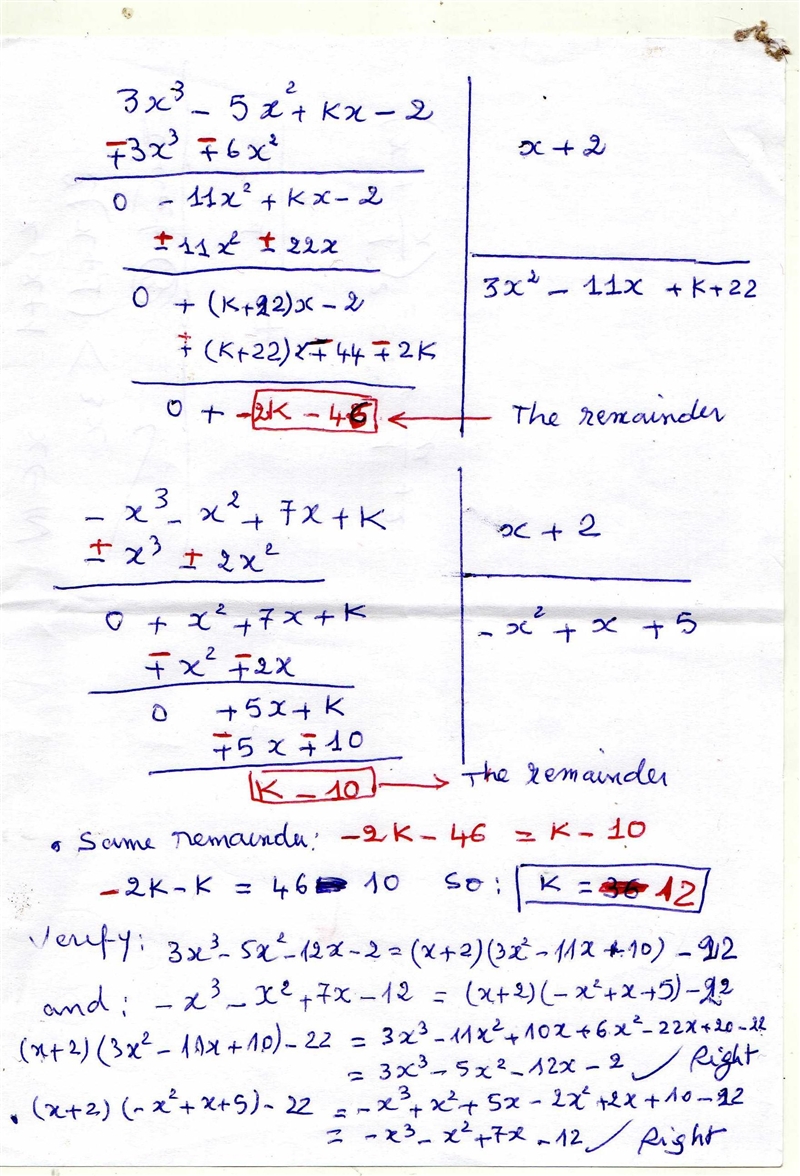 3x³ - 5x² + Kx - 2
∓3x³ ∓6x²
x + 2
0 - 11x² + Kx - 2
± 11x² ± 22x
3x² - 11x + K+22
0 + (K+22)x - 2
∓ (K+22)x ∓ 44 ∓ 2K
0 + -2K - 46 ← The remainder
- x³ - x² + 7x + K
x + 2
± x³ ± 2x²
0 + x² + 7x + K
- x² + x + 5
∓ x² ∓ 2x
0 + 5x + K
∓ 5x ∓ 10
K - 10 → The remainder
• Same remainder: -2K - 46 = K - 10
-2K - K = 46 - 10 So: K = 12
Verify: 3x³ - 5x² - 12x - 2 = (x+2)(3x² - 11x + 10) - 22
and: -x³ - x² + 7x - 12 = (x+2)(-x² + x + 5) - 22
(x+2)(3x² - 11x + 10) - 22 = 3x³ - 11x² + 10x + 6x² - 22x + 20 - 22
= 3x³ - 5x² - 12x - 2 ✓ Right
• (x+2)(-x² + x + 5) - 22 = -x³ + x² + 5x - 2x² + 2x + 10 - 22
= -x³ - x² + 7x - 12 ✓ Right